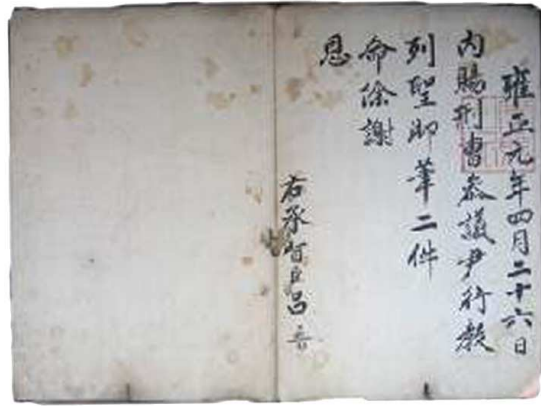 雍正元年四月二十六日
內賜刑曹叅議尹行敎
列聖御筆二件
命除謝
恩
右承旨臣呂